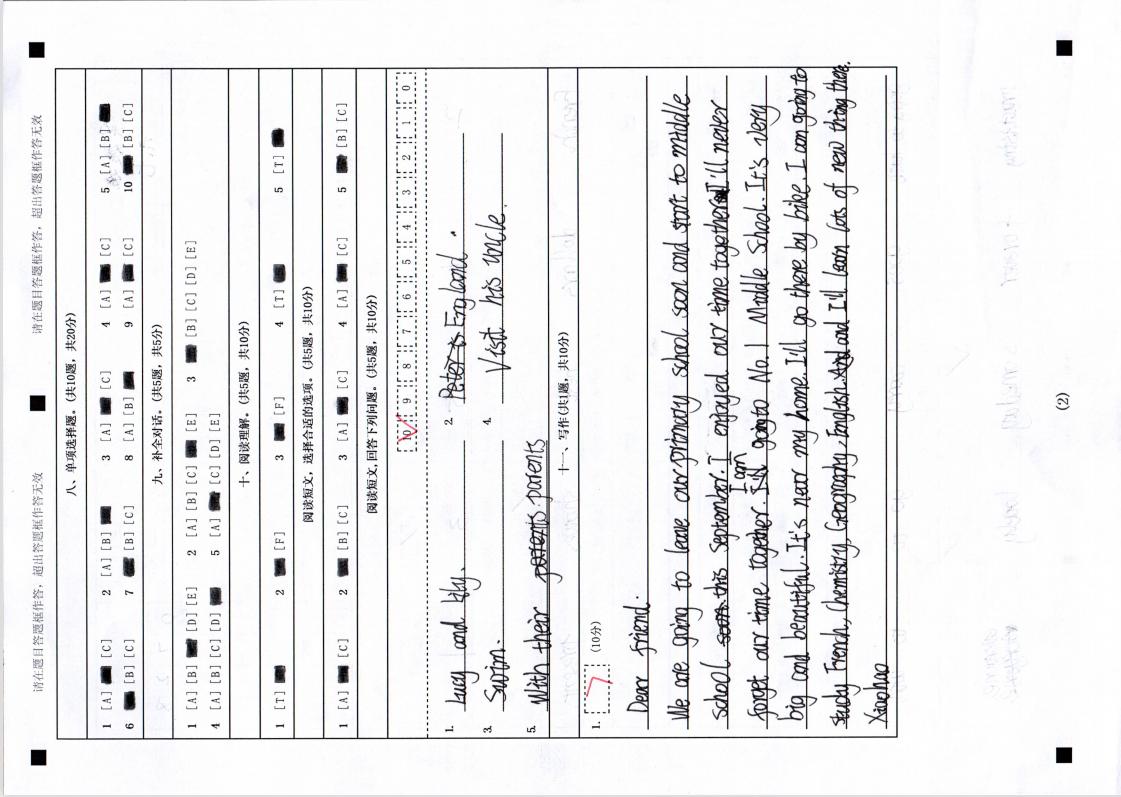 请在题目答题框作答，超出答题框作答无效
请在题目答题框作答，超出答题框作答无效
八、单项选择题。(共10题，共20分)
1 [A] [C] 2 [A] [B] 3 [A] [C] 4 [A] [C] 5 [A] [B]
6 [B] [C] 7 [B] [C] 8 [A] [B] 9 [A] [C] 10 [B] [C]
九、补全对话。(共5题，共5分)
1 [A] [B] [D] [E] 2 [A] [B] [C] [E] 3 [B] [C] [D] [E]
4 [A] [B] [C] [D] 5 [A] [C] [D] [E]
十、阅读理解。(共5题，共10分)
1 [T] 2 [F] 3 [F] 4 [T] 5 [T]
阅读短文，选择合适的选项。(共5题，共10分)
1 [A] [C] 2 [B] [C] 3 [A] [C] 4 [A] [C] 5 [B] [C]
阅读短文,回答下列问题。(共5题，共10分)
10 9 8 7 6 5 4 3 2 1 0
1. Lucy and Lily. 2. Peter is England.
3. Swim. 4. Visit his uncle.
5. With their parents. parents
十一、写作(共1题，共10分)
1. 7 (10分)
Dear friend.
We are going to leave our primary school soon and start to middle
school soon this September. I enjoyed our time together. I'll never
forget our time together. I am going to No.1 Middle School. It's very
big and beautiful. It's near my home. I'll go there by bike. I am going to
study French, Chemistry, Geography, English. And and I'll learn lots of new thing there.
Xiaohao
(2)